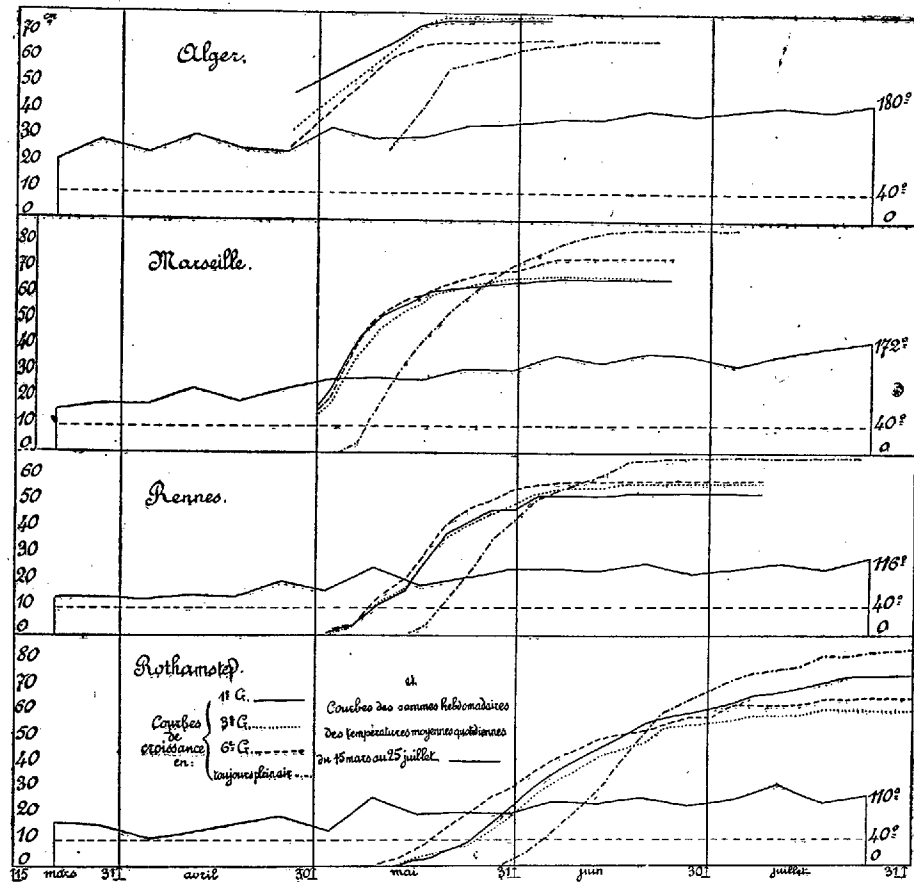 70 cm
60
50
40
30
20
10
0
Alger.
180°
40°
0
80
70
60
50
40
30
20
10
0
Marseille.
172°
40°
0
60
50
40
30
20
10
0
Rennes.
116°
40°
0
80
70
60
50
40
30
20
10
0
Rothamsted.
Courbes de croissance en:
1ª G.
3ª G.
6ª G.
toujours plein air
et
Courbes des sommes hebdomadaires
des températures moyennes quotidiennes
du 15 mars au 25 juillet
110°
40°
0
15 mars 31 avril 30 mai 31 juin 30 juillet 31